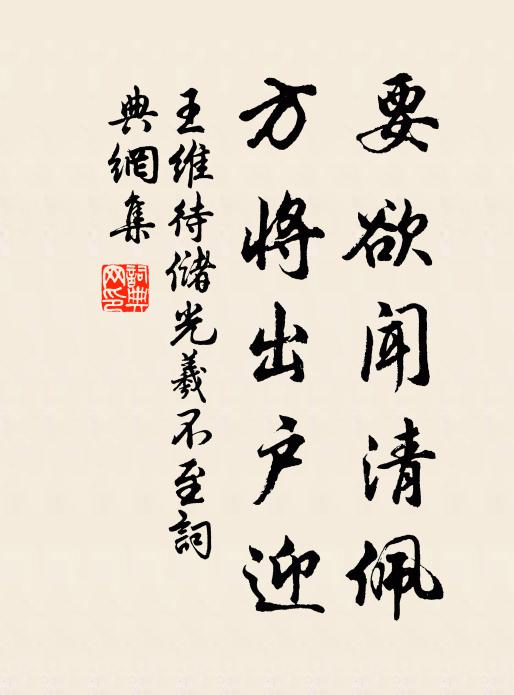 要欲闻清佩
方将出户迎
王维待储光羲不至詞
典網集
詞典
网印